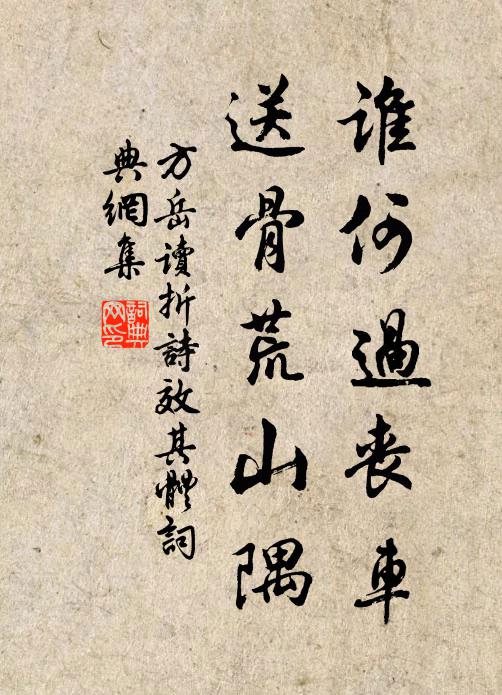 誰何過喪車
送骨荒山隅
方岳讀折詩效其體詞
典網集
詞典
网印